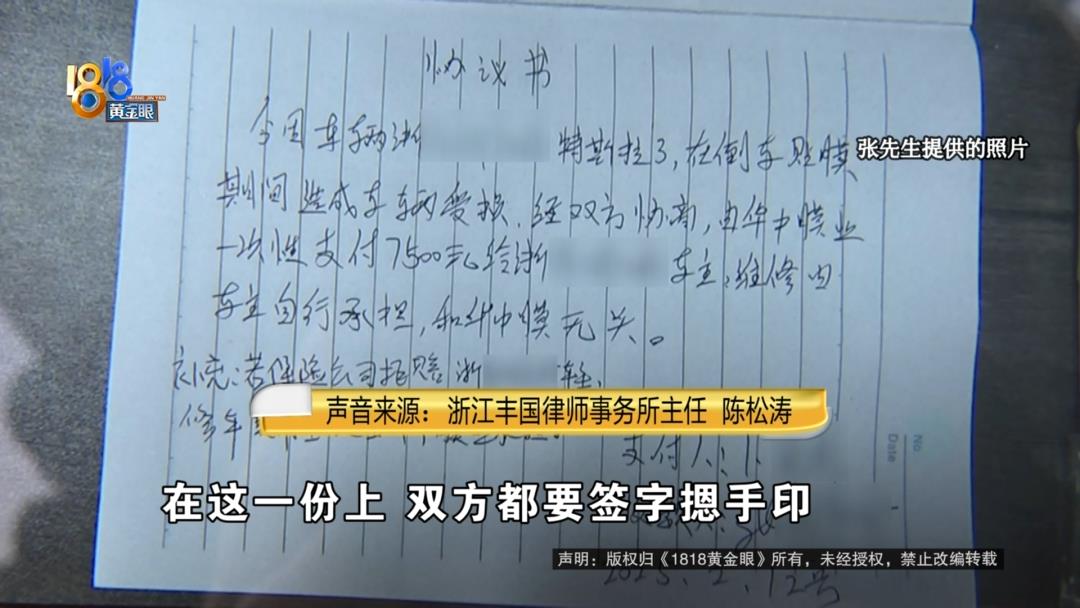 1818
HUANG JIN YAN
黄金眼
协议书
今因车辆浙 特斯拉3,在倒车贴膜
张先生提供的照片
期间造成车辆受损,经双方协商,由华中膜业
一次性支付7500元给浙 车主,维修由
车主自行承担,和华中膜无关。
补充:若保险公司拒赔浙 车,
修车
声音来源:浙江丰国律师事务所主任 陈松涛
支付人:
No
Date
在这一份上 双方都要签字摁手印
声明:版权归《1818黄金眼》所有,未经授权,禁止改编转载
2025、2、12号